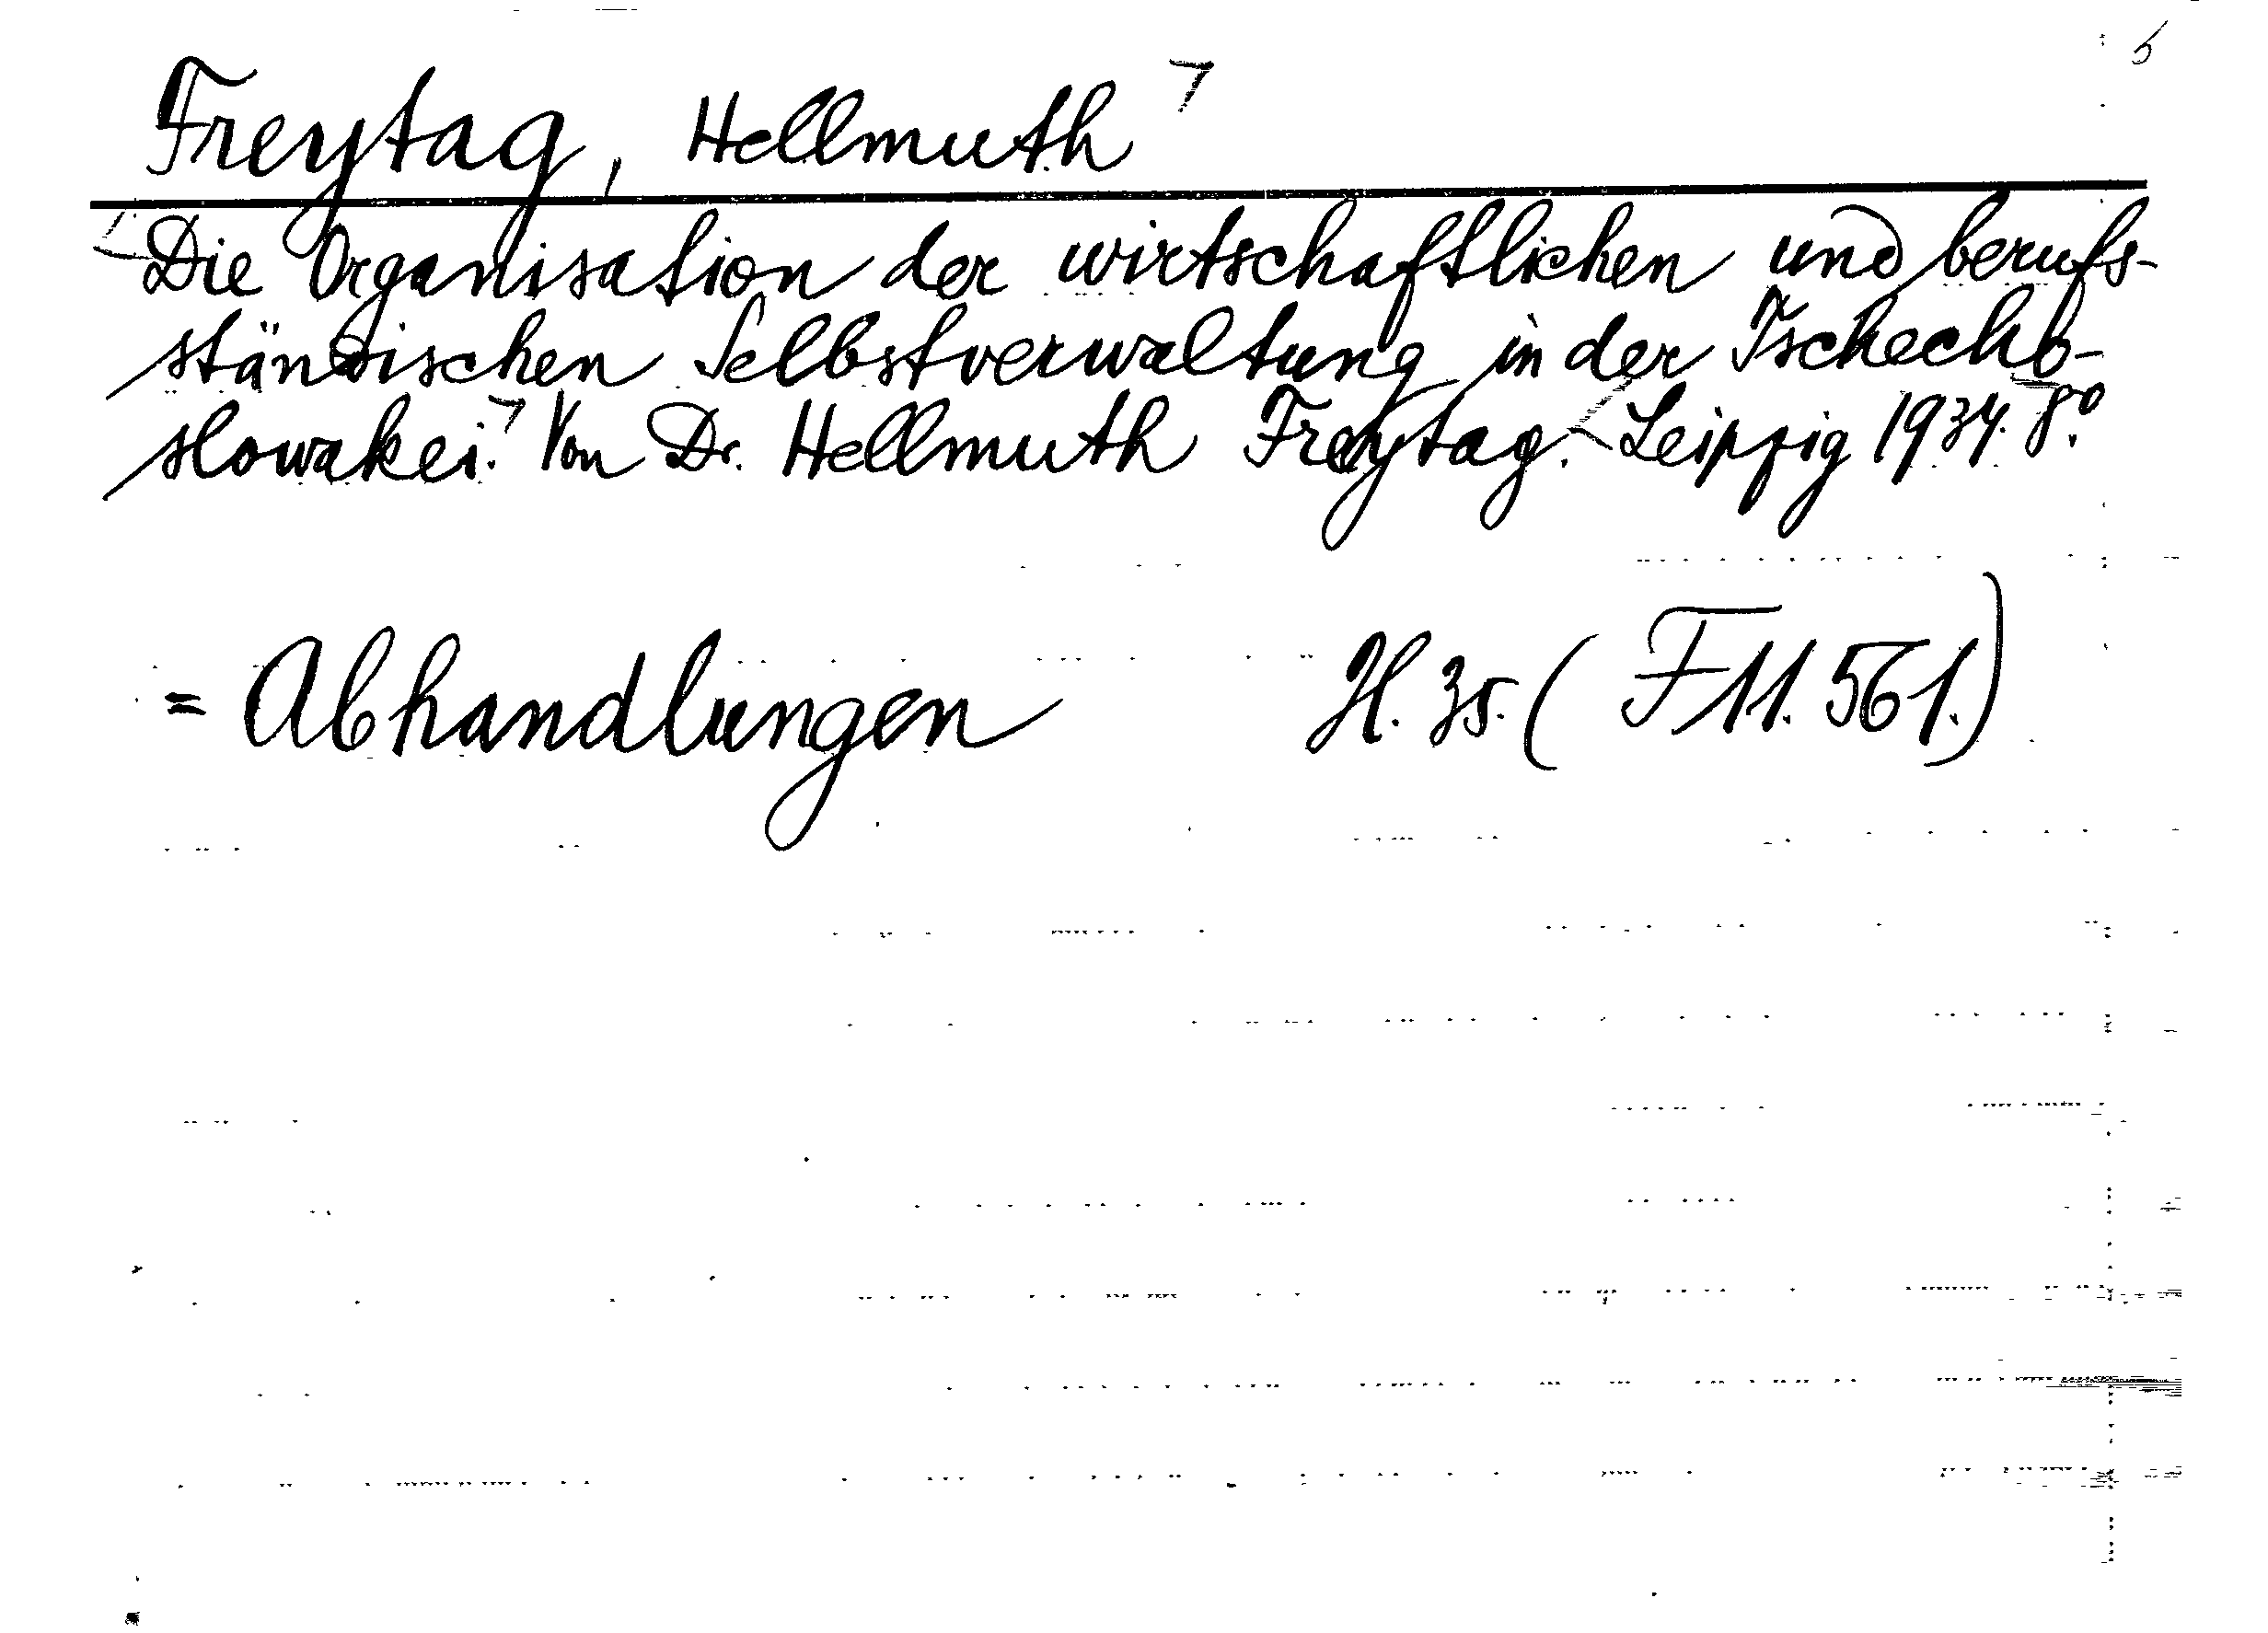 Freytag, Hellmuth
Die Organisation der wirtschaftlichen und berufs-
ständischen Selbstverwaltung in der Tschecho-
slowakei. Von Dr. Hellmuth Freytag. Leipzig 1934. 8°.
= Abhandlungen H. 35. (F11.561.)